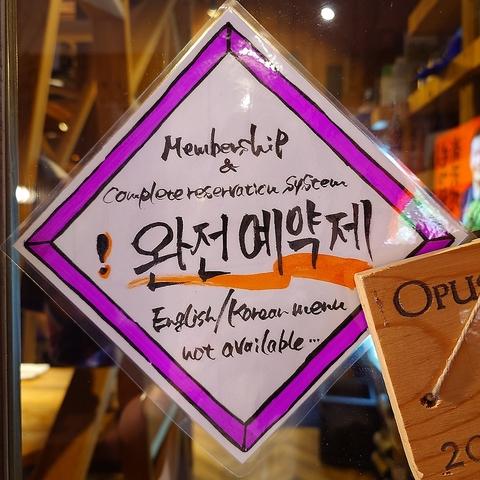 Membership
&
Complete reservation system
! 완전예약제
English/Korean menu
not available...
OPUS
20